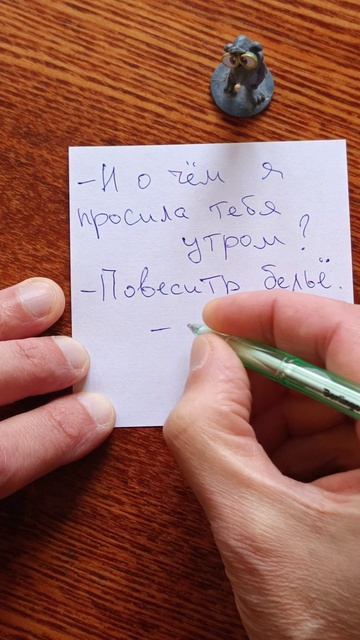 -И о чём я
просила тебя
утром?
-Повесить бельё.
-